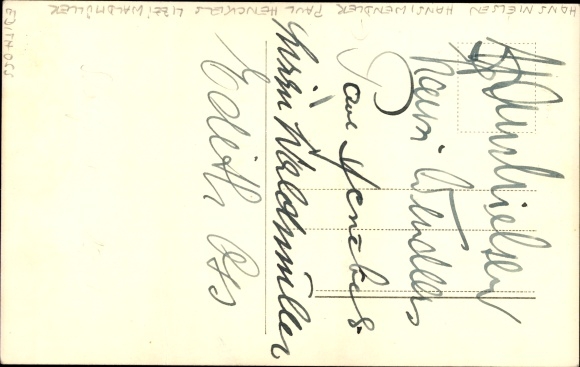 HANS NIELSEN HANSI WENDLER PAUL HENCKELS LIZZI WALDMÜLLER
EDITH OSS
Hans Nielsen
Hansi Wendler
Paul Henckels
Lizzi Waldmüller
Edith Oss